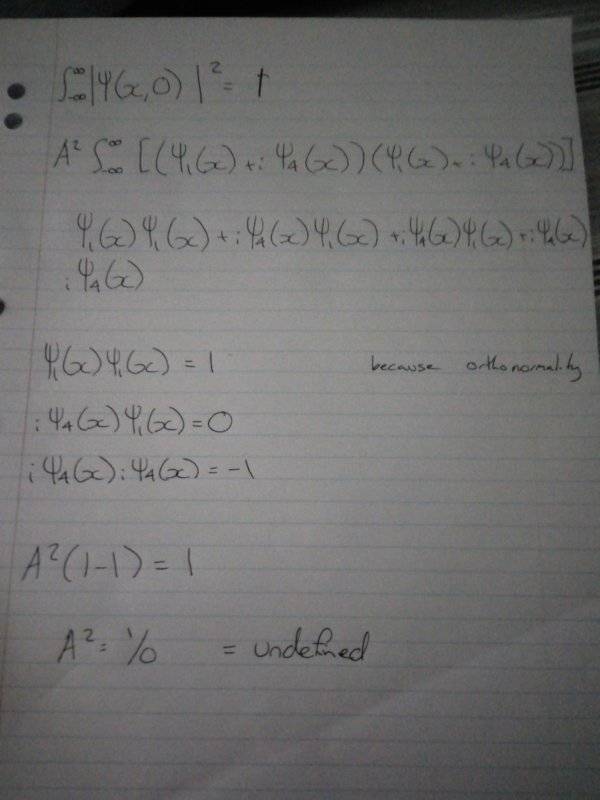 ∫_{-∞}^{∞} |Ψ(x,0)|² = 1
A² ∫_{-∞}^{∞} [(Ψ₁(x) + i Ψ₄(x))(Ψ₁(x) + i Ψ₄(x))]
Ψ₁(x)Ψ₁(x) + iΨ₄(x)Ψ₁(x) + iΨ₄(x)Ψ₁(x) + iΨ₄(x)
iΨ₄(x)
Ψ₁(x)Ψ₁(x) = 1 because orthonormality
iΨ₄(x)Ψ₁(x) = 0
iΨ₄(x)iΨ₄(x) = -1
A²(1-1) = 1
A² = 1/0 = undefined